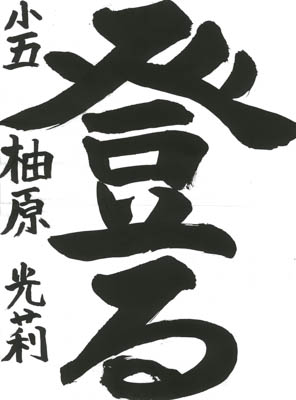 登る
小五 柚原 光莉